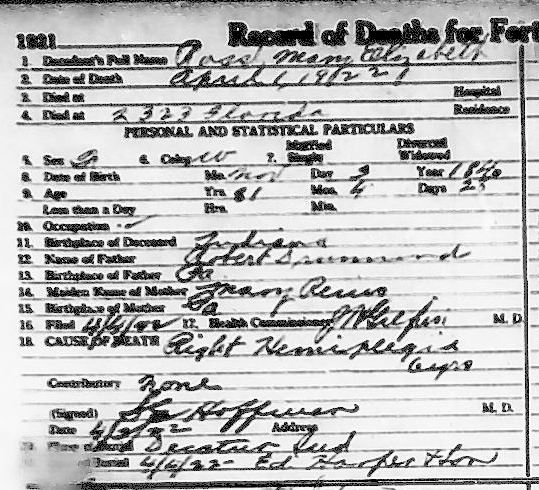 1921 Record of Deaths for Fort
1. Decedent's Full Name Ross Mary Elizabeth
2. Date of Death April 1, 1922
3. Died at Hospital
4. Died at 2323 Florida Residence
PERSONAL AND STATISTICAL PARTICULARS
5. Sex F 6. Color W 7. Married Single Divorced Widowed
8. Date of Birth Mo. Nov Day 3 Year 1840
9. Age Yrs. 81 Mos. 4 Days 2
Less than a Day Hrs. Min.
10. Occupation
11. Birthplace of Deceased Indiana
12. Name of Father Robert Drummond
13. Birthplace of Father Pa
14. Maiden Name of Mother Mary
15. Birthplace of Mother Pa
16. Filed 17. Health Commissioner M. D.
18. CAUSE OF DEATH Right Hemiplegia
Contributory None
(Signed) Hoffman M. D.
Date Address
Decatur Ind
4/4/22 Ed Harper & Son